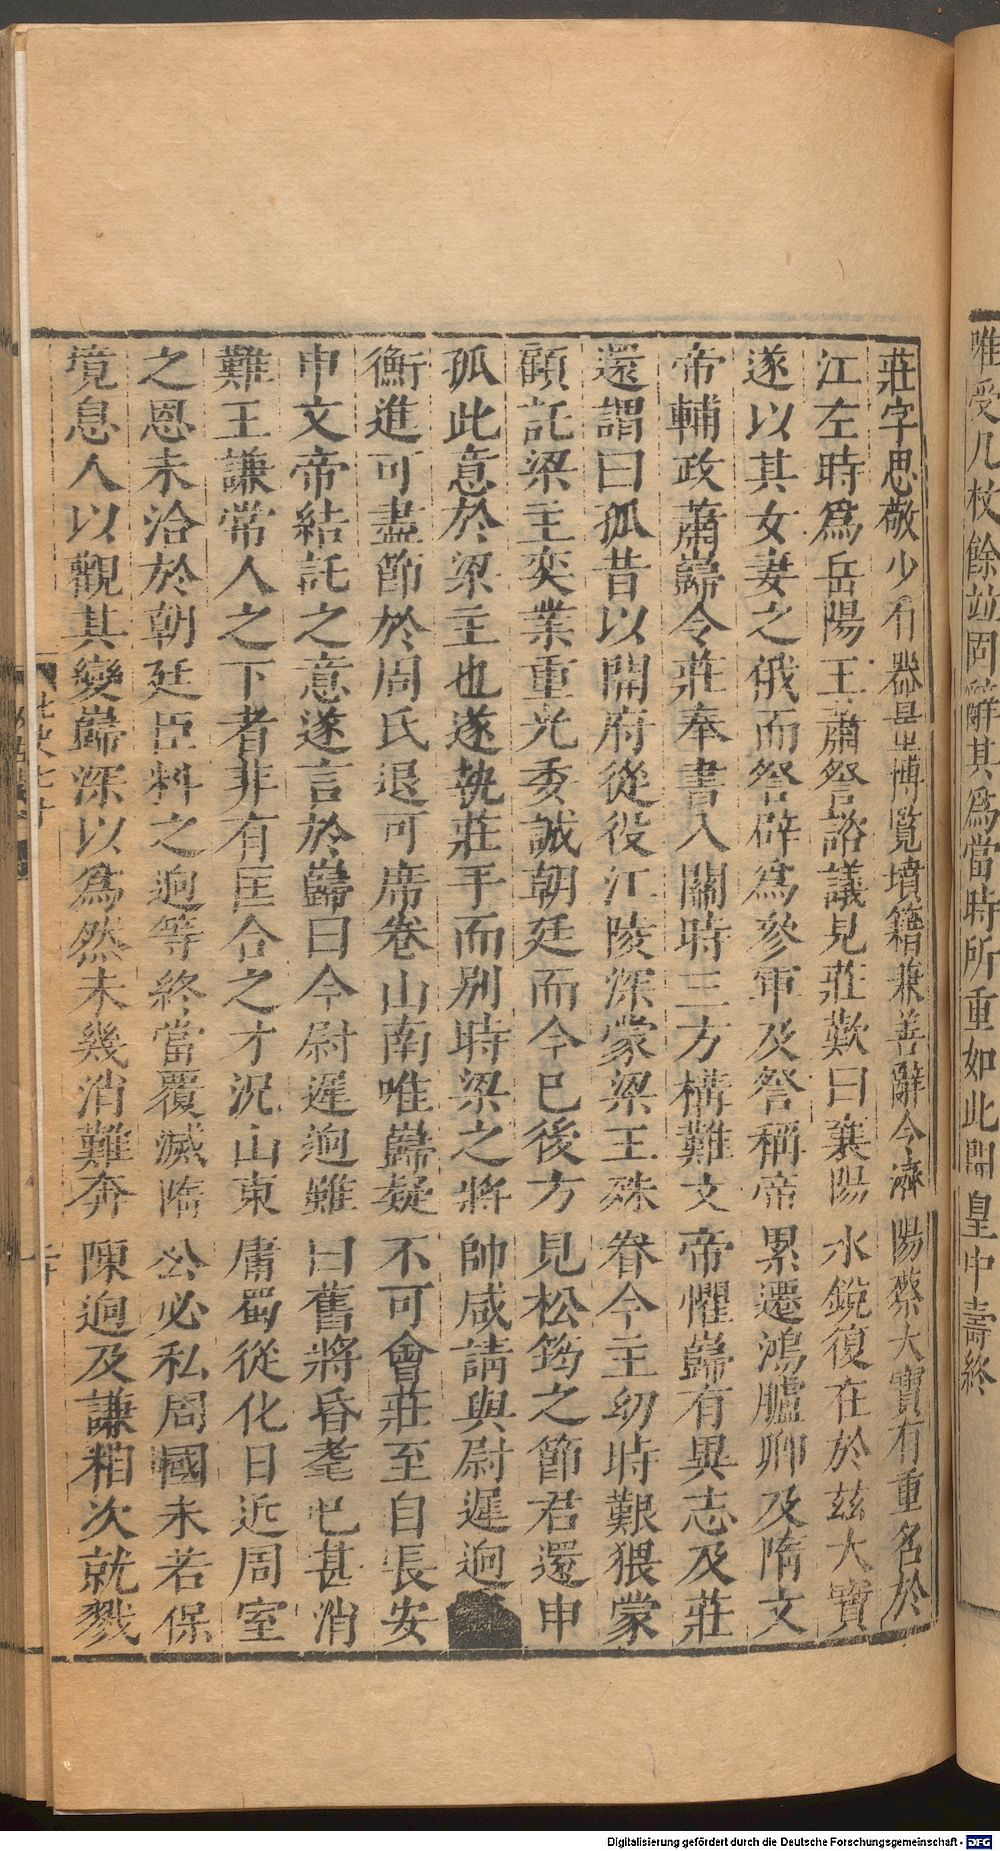 唯受几杖餘並固辭其為當時所重如此開皇中壽終
莊字思敬少有器量博覽墳籍兼善辭令濟陽蔡大寶有重名於
江左時爲岳陽王蕭詧諮議見莊歎曰襄陽水鏡復在於兹大寶
遂以其女妻之俄而詧辟爲參軍及詧稱帝累遷鴻臚卿及隋文
帝輔政蕭巋令莊奉書入關時三方構難文帝懼巋有異志及莊
還謂曰孤昔以開府從役江陵深蒙梁王殊眷今主幼時艱猥蒙
顧託梁主奕業重光委誠朝廷而今已後方見松筠之節君還申
孤此意於梁主也遂執莊手而别時梁之將帥咸請與尉遲迥
衡進可盡節於周氏退可席卷山南唯巋疑不可會莊至自長安
申文帝結託之意遂言於巋曰今尉遲迥雖曰舊將昏耄已甚消
難王謙常人之下者非有匡合之才況山東庸蜀從化日近周室
之恩未洽於朝廷臣料之迥等終當覆滅隋公必私周國未若保
境息人以觀其變巋深以爲然未幾消難奔陳迥及謙相次就戮
Digitalisierung gefördert durch die Deutsche Forschungsgemeinschaft - DFG